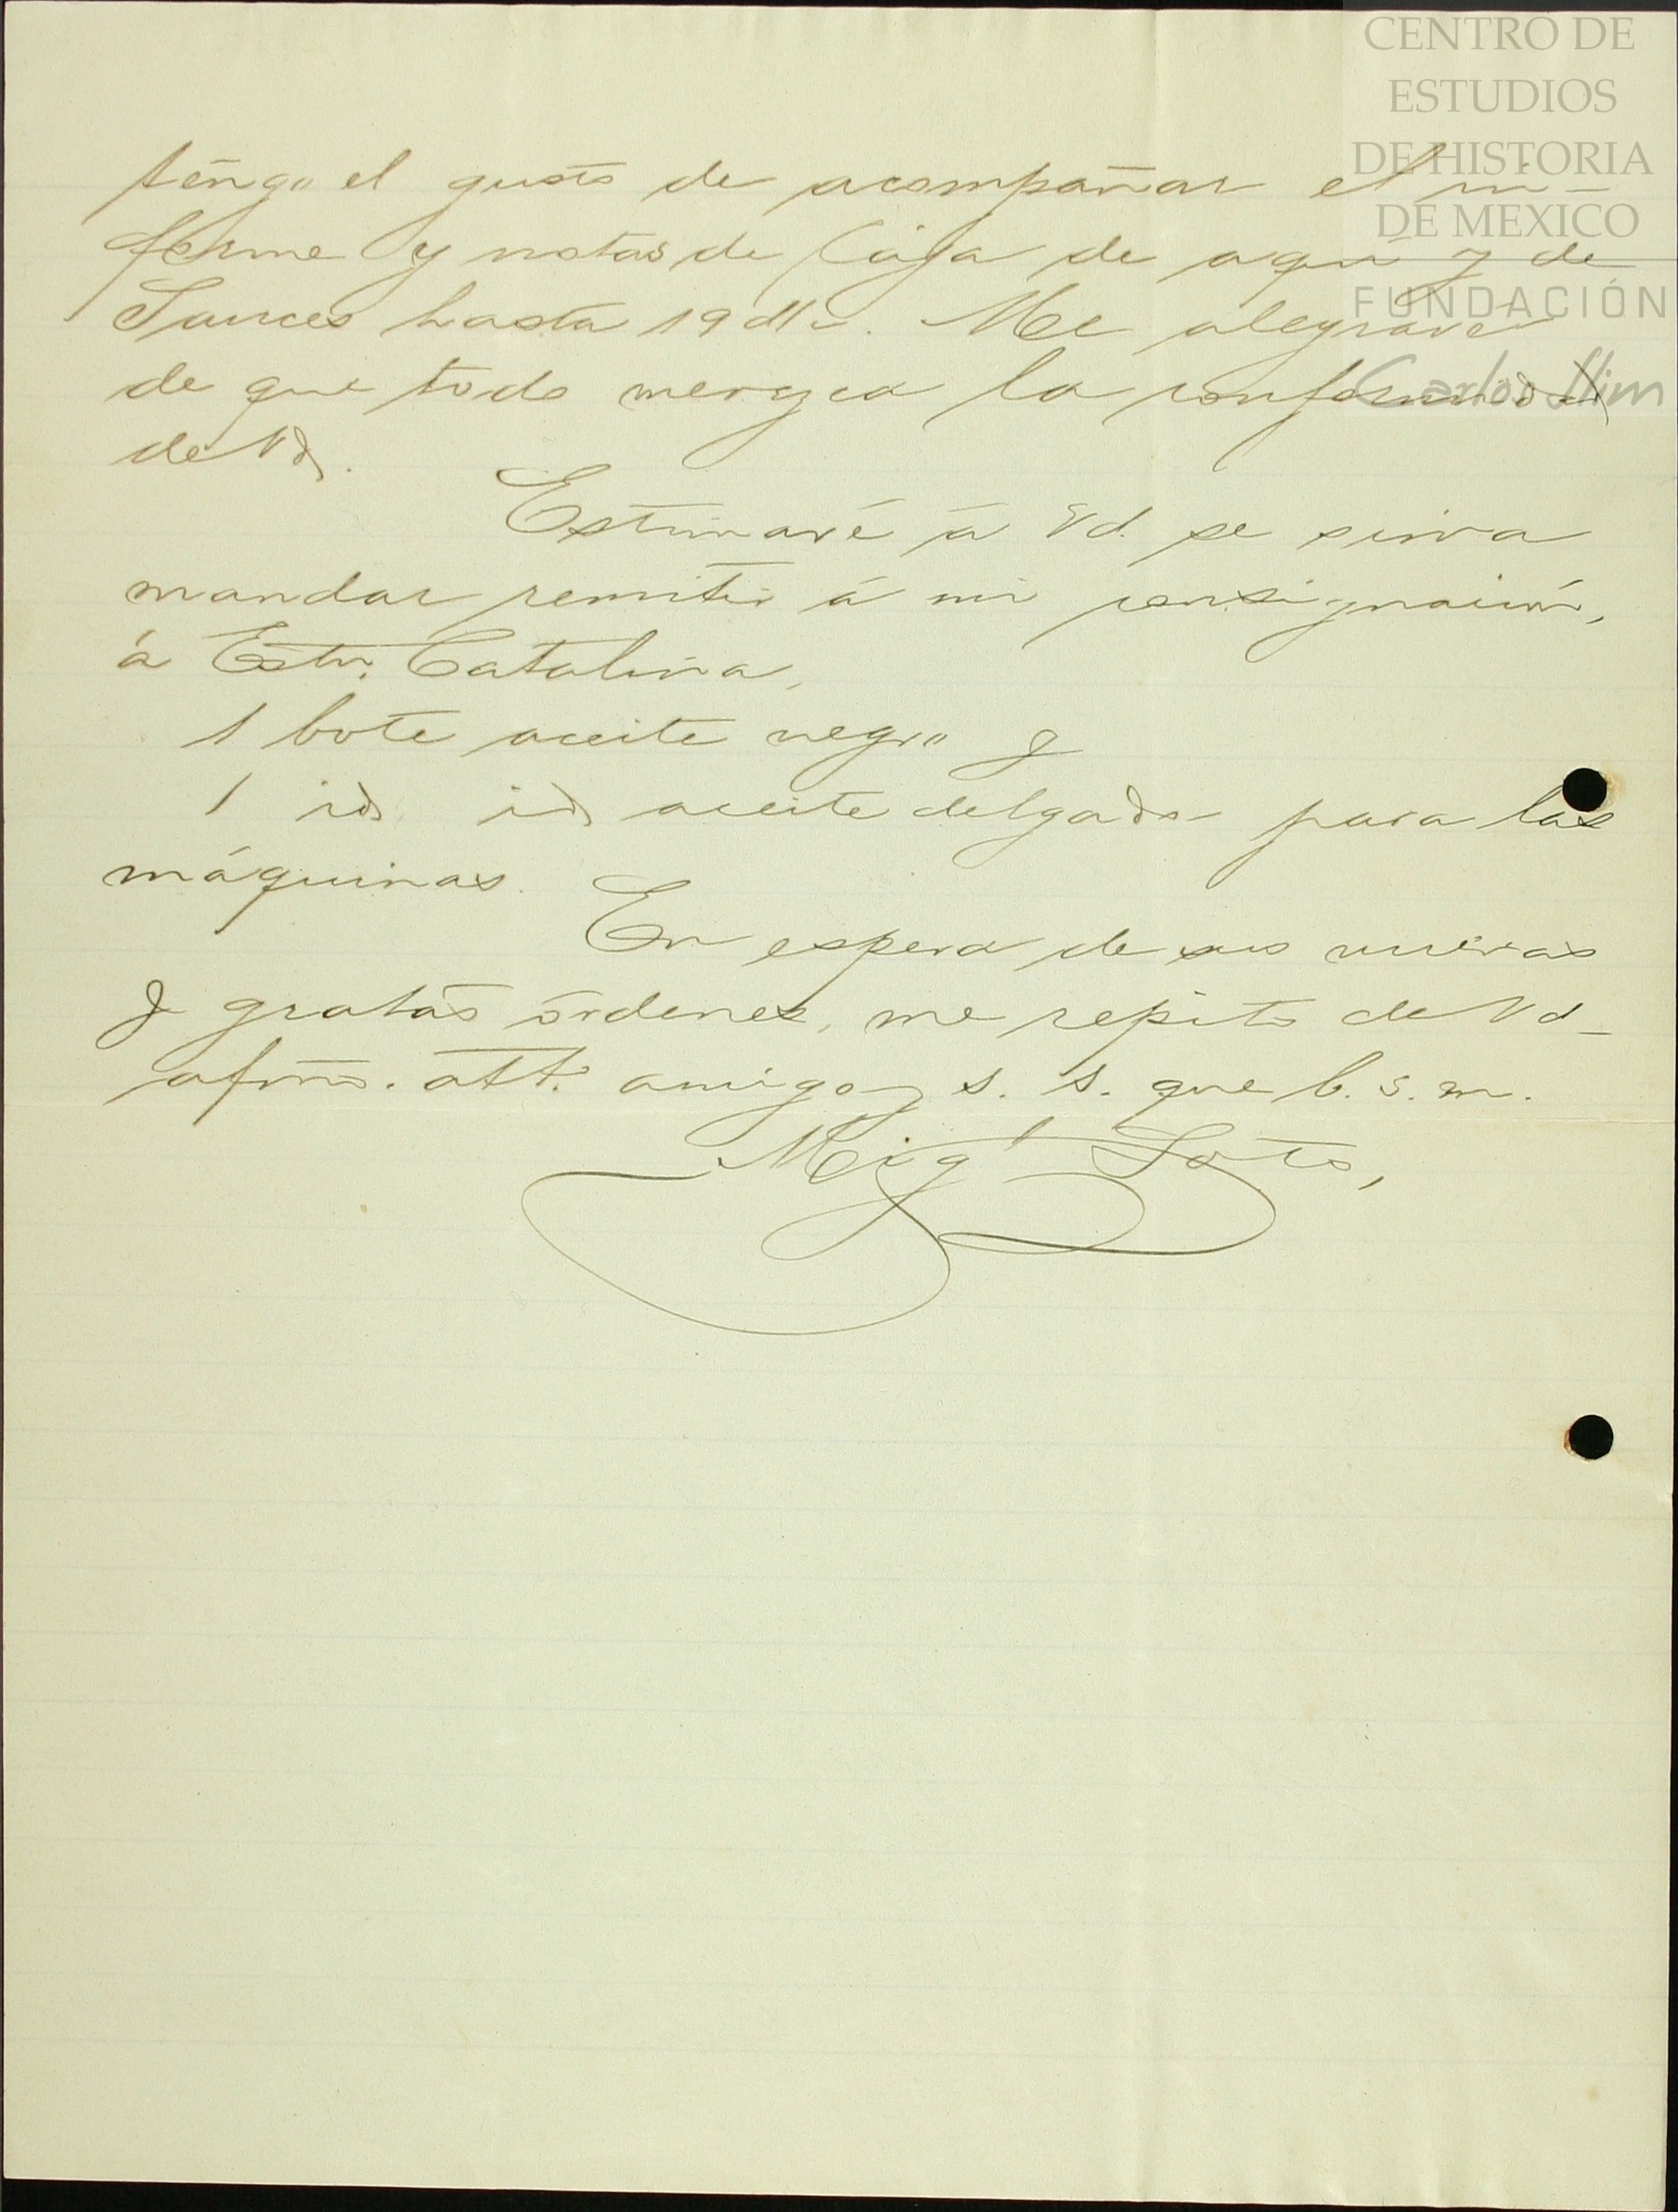 CENTRO DE
ESTUDIOS
DE HISTORIA
DE MÉXICO
FUNDACIÓN
Carlos Slim
tengo el gusto de acompañar el in-
forme y notas de Caja de aquí y de
Sauces hasta 19 Me alegraré
de que todo merezca la conformidad
de Vd.
Estimaré á Vd. se sirva
mandar remitir á mi consignación,
á Estn. Catalina,
1 bote aceite negro y
1 id id aceite delgado para las
máquinas.
En espera de sus nuevas
y gratas órdenes, me repito de Vd
afmo. att. amigo y s. s. que b. s. m.
Migl Soto,